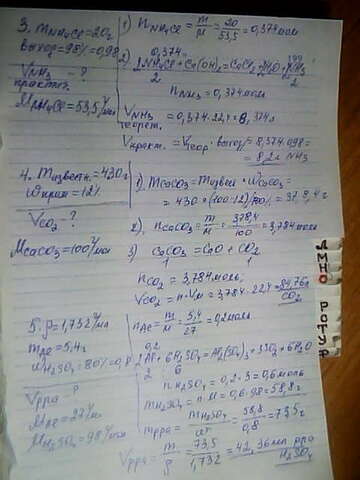 3. m NH₄Cl = 20г
выход = 98% = 0,98
V NH₃ - ?
практ.
M NH₄Cl = 53,5 г/моль
1) n NH₄Cl = m/M = 20/53,5 = 0,374 моль
0,374
2) 2NH₄Cl + Ca(OH)₂ = CaCl₂ + 2H₂O + 2NH₃
2 2
n NH₃ = 0,374 моль
V NH₃ = 0,374 · 22,4 = 8,374 л
теорет.
V практ. = V теор · выход = 8,374 · 0,98 =
= 8,2 л NH₃
4. m известн. = 430 г
ω прим = 12%
V CO₂ - ?
M CaCO₃ = 100 г/моль
1) m CaCO₃ = m извест · ω CaCO₃ =
= 430 · (100-12)/100% = 378,4 г
2) n CaCO₃ = m/M = 378,4/100 = 3,784 моль
3) CaCO₃ = CaO + CO₂
1 1
n CO₂ = 3,784 моль
V CO₂ = n · Vм = 3,784 · 22,4 = 84,76 л
CO₂
5. ρ = 1,732 г/мл
m Al = 5,4 г
ω H₂SO₄ = 80% = 0,8
V рра ?
M Al = 27 г/моль
M H₂SO₄ = 98 г/моль
n Al = m/M = 5,4/27 = 0,2 моль
0,2
2Al + 6H₂SO₄ = Al₂(SO₄)₃ + 3SO₂ + 6H₂O
2 6
n H₂SO₄ = 0,2 · 3 = 0,6 моль
m H₂SO₄ = n · M = 0,6 · 98 = 58,8 г
m рра = m H₂SO₄/ω = 58,8/0,8 = 73,5 г
V рра = m/ρ = 73,5/1,732 = 42,36 мл рра
H₂SO₄